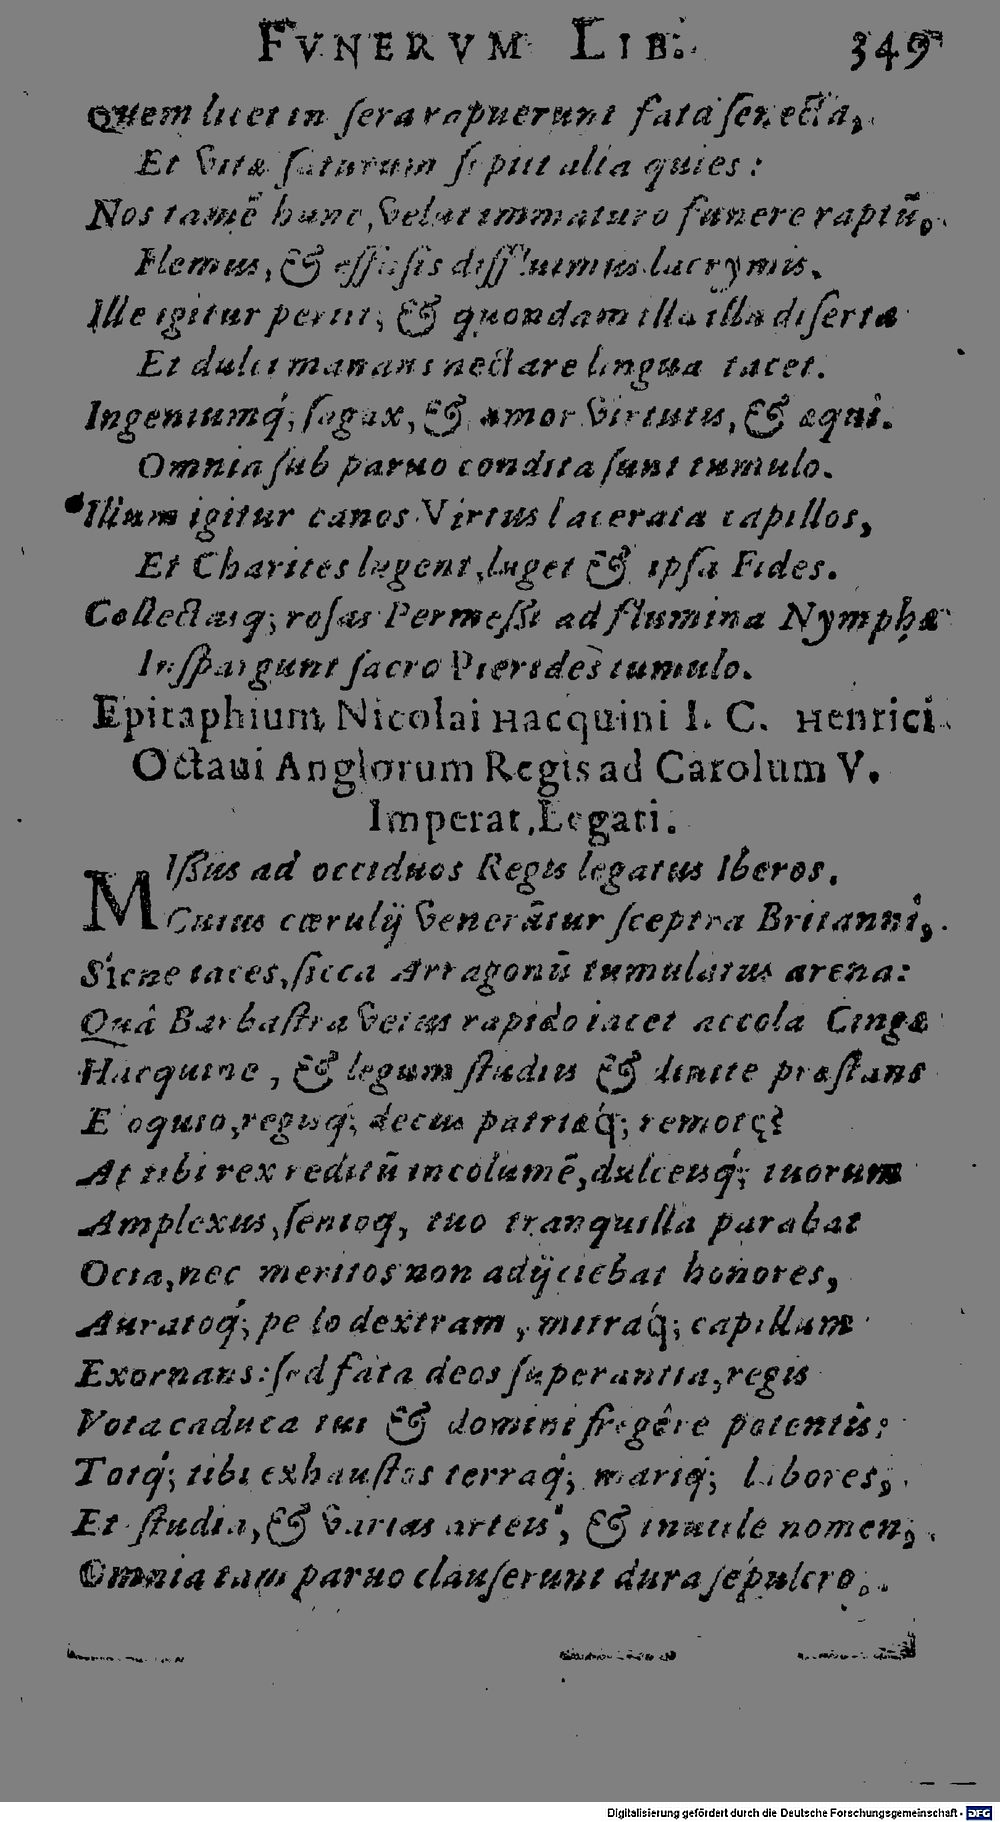 FVNERVM LIB. 349
Quem licet in ſera rapuerunt fata ſenecta,
Et vitæ ſaturum ſepiit alta quies:
Nos tamẽ hunc, velut immaturo funere raptũ,
Flemus, & effuſis diffluimus lacrymis.
Ille igitur periit, & quondam illa illa diſerta
Et dulci manans nectare lingua tacet.
Ingeniumq́; ſagax, & amor virtutis, & æqui.
Omnia ſub paruo condita ſunt tumulo.
Illum igitur canos Virtus lacerata capillos,
Et Charites lugent, luget & ipſa Fides.
Collectasq; roſas Permeßi ad flumina Nymphæ
Inſpargunt ſacro Pierides tumulo.
Epitaphium Nicolai Hacquini I. C. Henrici
Octaui Anglorum Regis ad Carolum V.
Imperat. Legati.
MIßus ad occiduos Regis legatus Iberos,
Cuius cærulij venerãtur ſceptra Britanni,
Siccne taces, ſicca Arragonũ tumulatus arena:
Quâ Barbaſtra vetus rapido iacet accola Cingæ
Hacquine, & legum ſtudiis & diuite præſtans
Eloquio, regisq́; decus patriæq́; remotę?
At tibi rex reditũ incolumẽ, dulceisq́; tuorum
Amplexus, ſenioq, tuo tranquilla parabat
Ocia, nec meritos non adijciebat honores,
Auratoq́; pelo dextram, mitraq́; capillum
Exornans: ſed fata deos ſuperantia, regis
Vota caduca tui & domini fregêre potentis:
Totq́; tibi exhauſtos terraq́; mariq́; labores,
Et ſtudia, & varias arteis, & inutile nomen,
Omnia tam paruo clauſerunt dura ſepulcro.
Digitalisierung gefördert durch die Deutsche Forschungsgemeinschaft - DFG